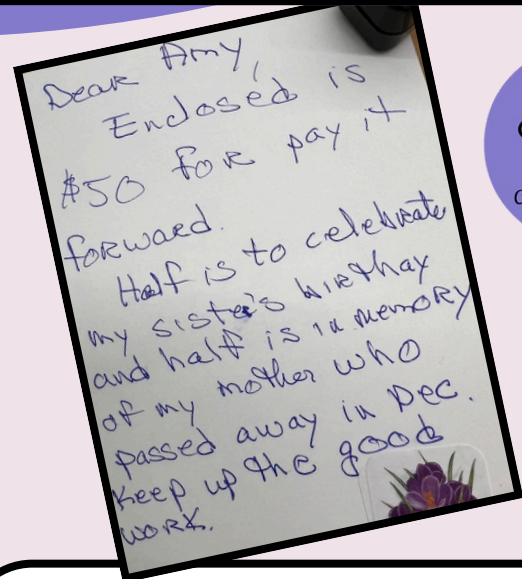 Dear Amy,
Enclosed is
$50 for pay it
forward.
Half is to celebrate
my sister's birthay
and half is in memory
of my mother who
passed away in Dec.
Keep up the good
work.